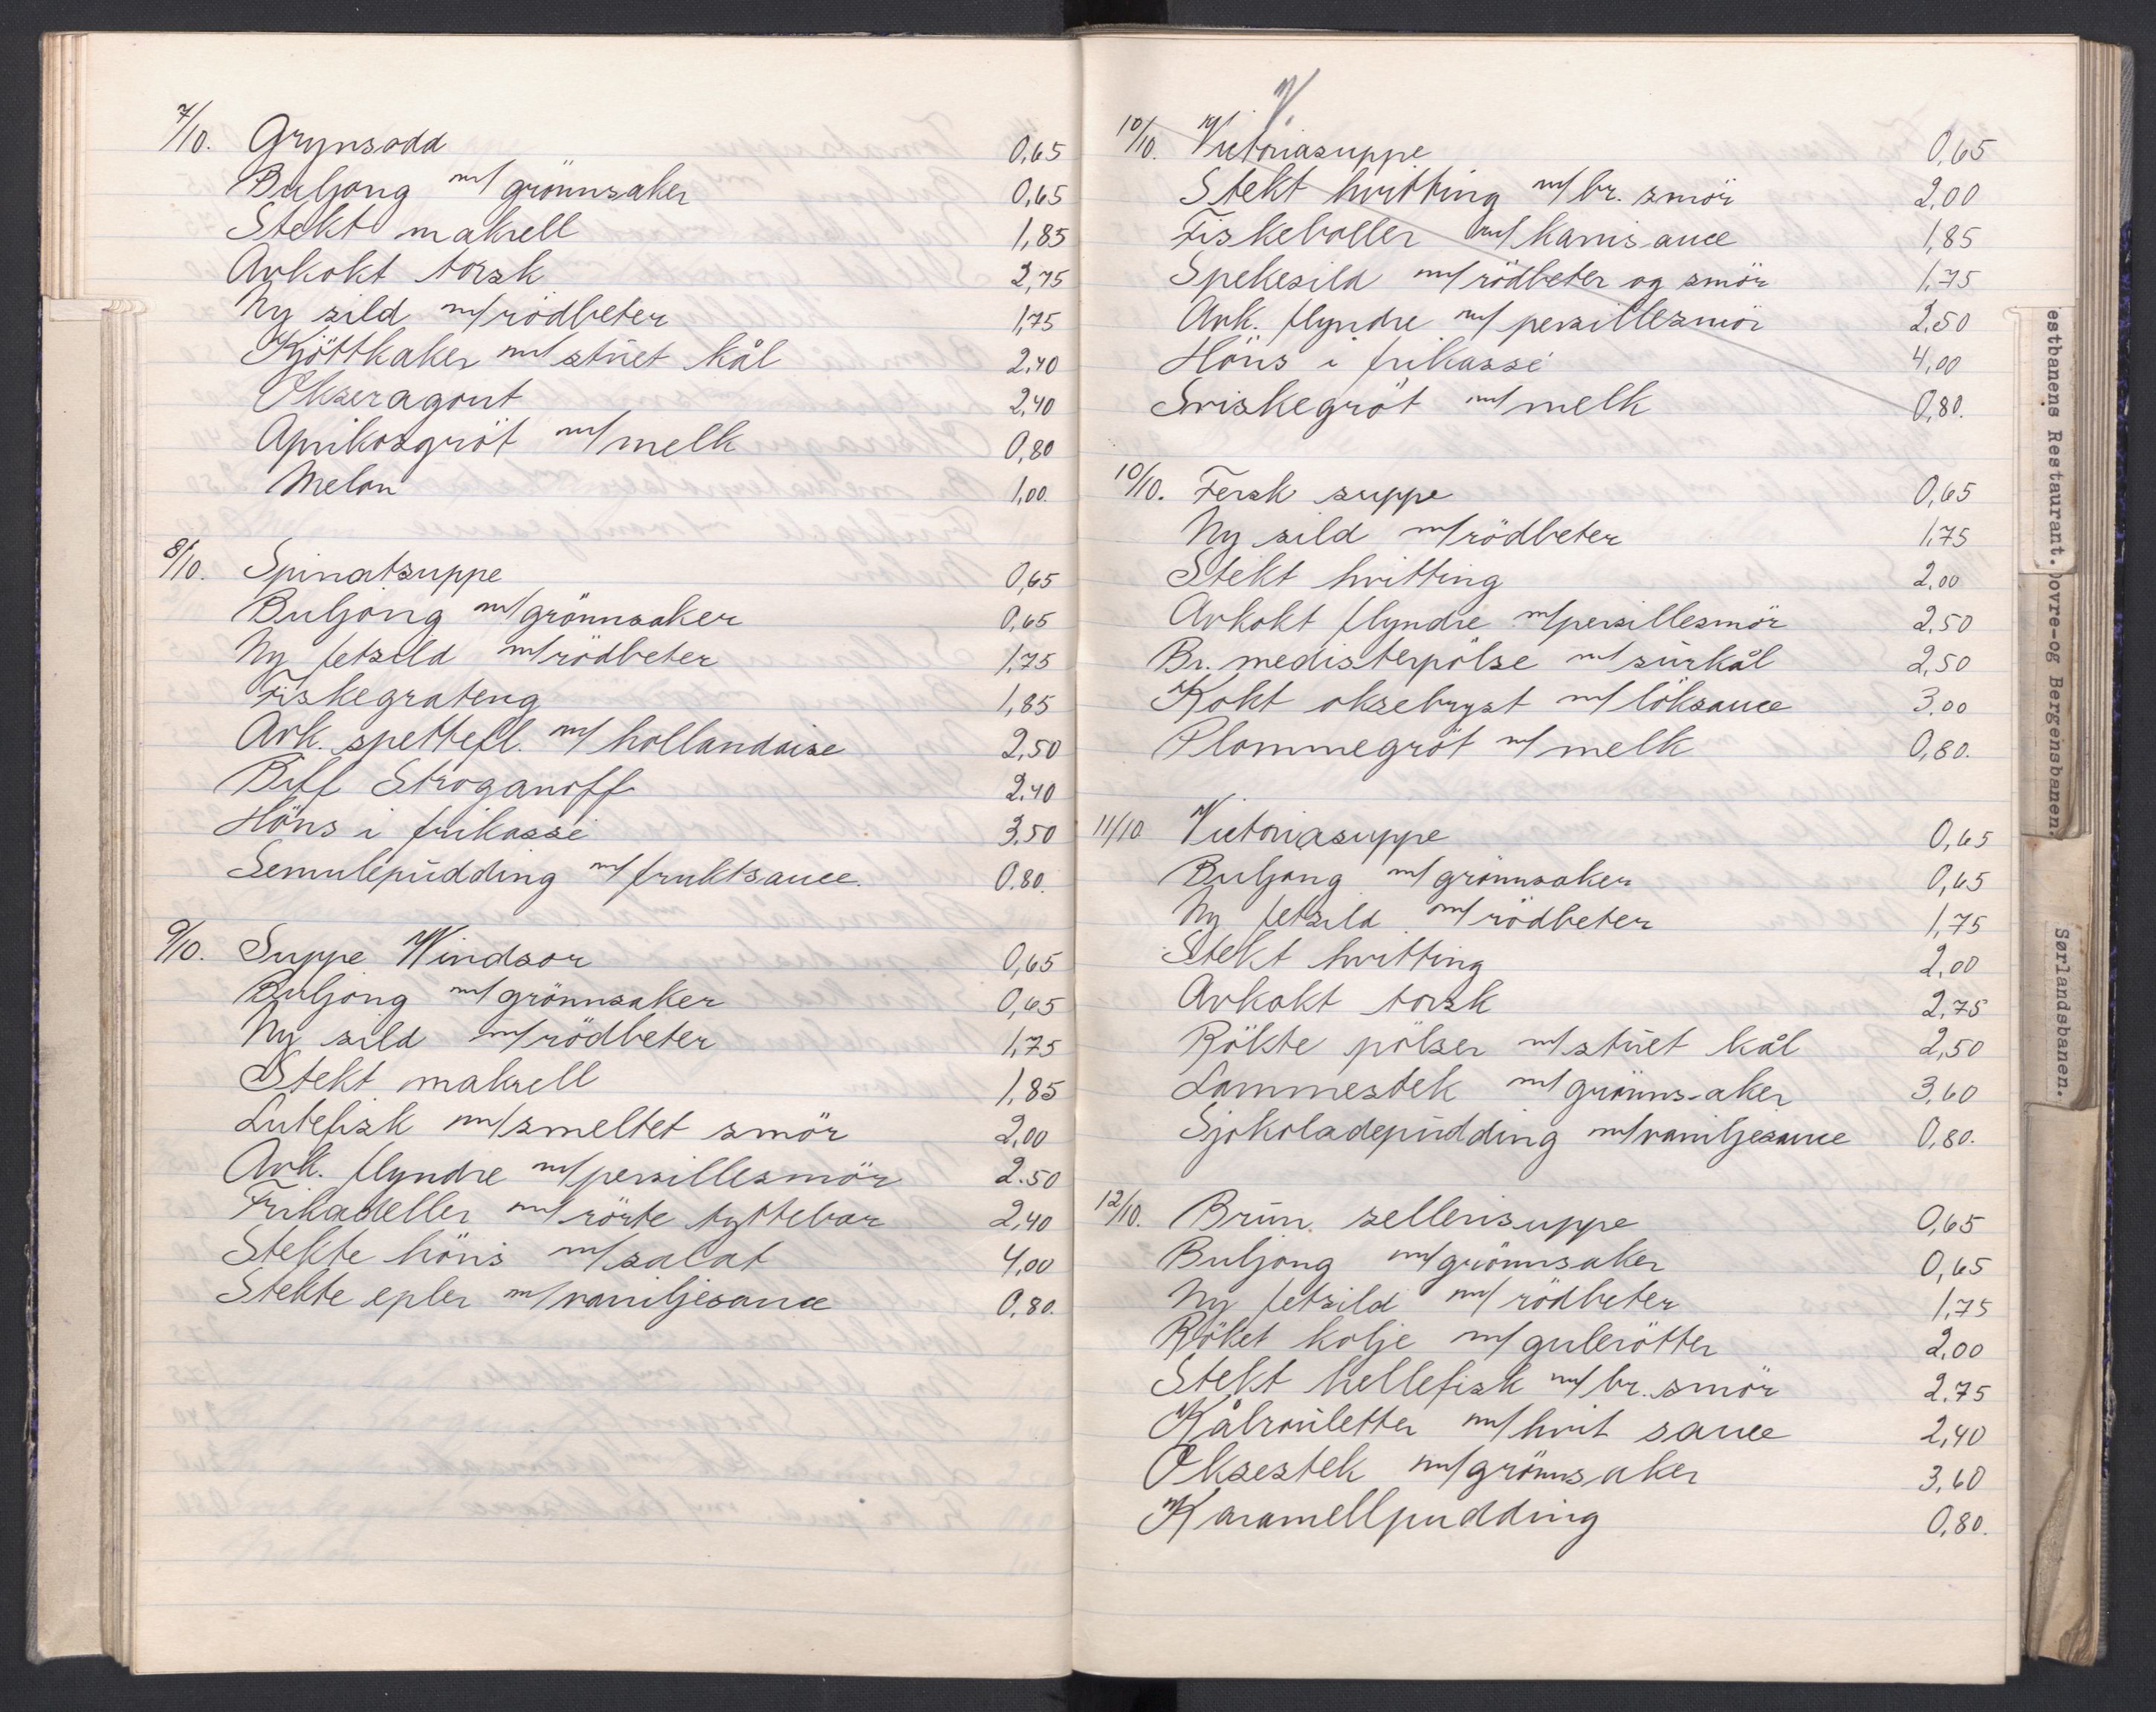 7/10. Grynsodd 0,65
Buljong m/ grönnsaker 0,65
Stekt makrell 1,85
Avkokt torsk 2,75
Ny sild m/rödbeter 1,75
Kjöttkaker m/ stuet kål 2.40
Okseragout 2,40
Aprikosgröt m/melk 0,80
Melon 1,00.
8/10. Spinatsuppe 0,65
Buljong m/grönnsaker 0,65
Ny fetsild m/rödbeter 1,75
Fiskegrateng 1,85
Avk. spettefl. m/ hollandaise 2,50
Biff Stroganoff 2.40
Höns i frikassé 3,50
Semulepudding m/fruktsauce. 0.80.
9/10. Suppe Windsor 0,65
Buljong m/grönnsaker 0,65
Ny sild m/rödbeter 1,75
Stekt makrell 1,85
Lutefisk m/smeltet smör 2,00
Avk. flyndre m/persillesmör 2.50
Frikadeller m/ rörte tyttebær 2,40
Stekte höns m/salat 4,00
Stekte epler m/vaniljesauce 0,80.
10/10. Victoriasuppe 0,65
Stekt hvitting m/br. smör 2,00
Fiskeboller m/ karrisauce 1,85
Spekesild m/rödbeter og smör 1,75
Avk. flyndre m/ persillesmör 2.50
Höns i frikassé 4,00
Sviskegröt m/melk 0,80.
10/10. Fersk suppe 0,65
Ny sild m/rödbeter 1,75
Stekt hvitting 2,00
Avkokt flyndre m/persillesmör 2.50
Br. medisterpölse m/ surkål 2,50
Kokt oksebryst m/ löksauce 3.00
Plommegröt m/ melk 0,80.
11/10 Victoriasuppe 0,65
Buljong m/grönnsaker 0,65
Ny fetsild m/rödbeter 1,75
Stekt hvitting 2,00
Avkokt torsk 2,75
Rökte pölser m/stuet kål 2,50
Lammestek m/ grönns-aker 3,60
Sjokoladepudding m/vaniljesauce 0,80.
12/10. Brun. sellerisuppe 0,65
Buljong m/grönnsaker 0,65
Ny fetsild m/ rödbeter 1,75
Röket kolje m/ gulerötter 2,00
Stekt hellefisk m/ br. smör 2.75
Kålrouletter m/hvit sauce 2,40
Oksestek m/grönnsaker 3,60
Karamellpudding 0,80.
estbanens Restaurant.
ovre-og Bergensbanen
Sørlandsbanen.